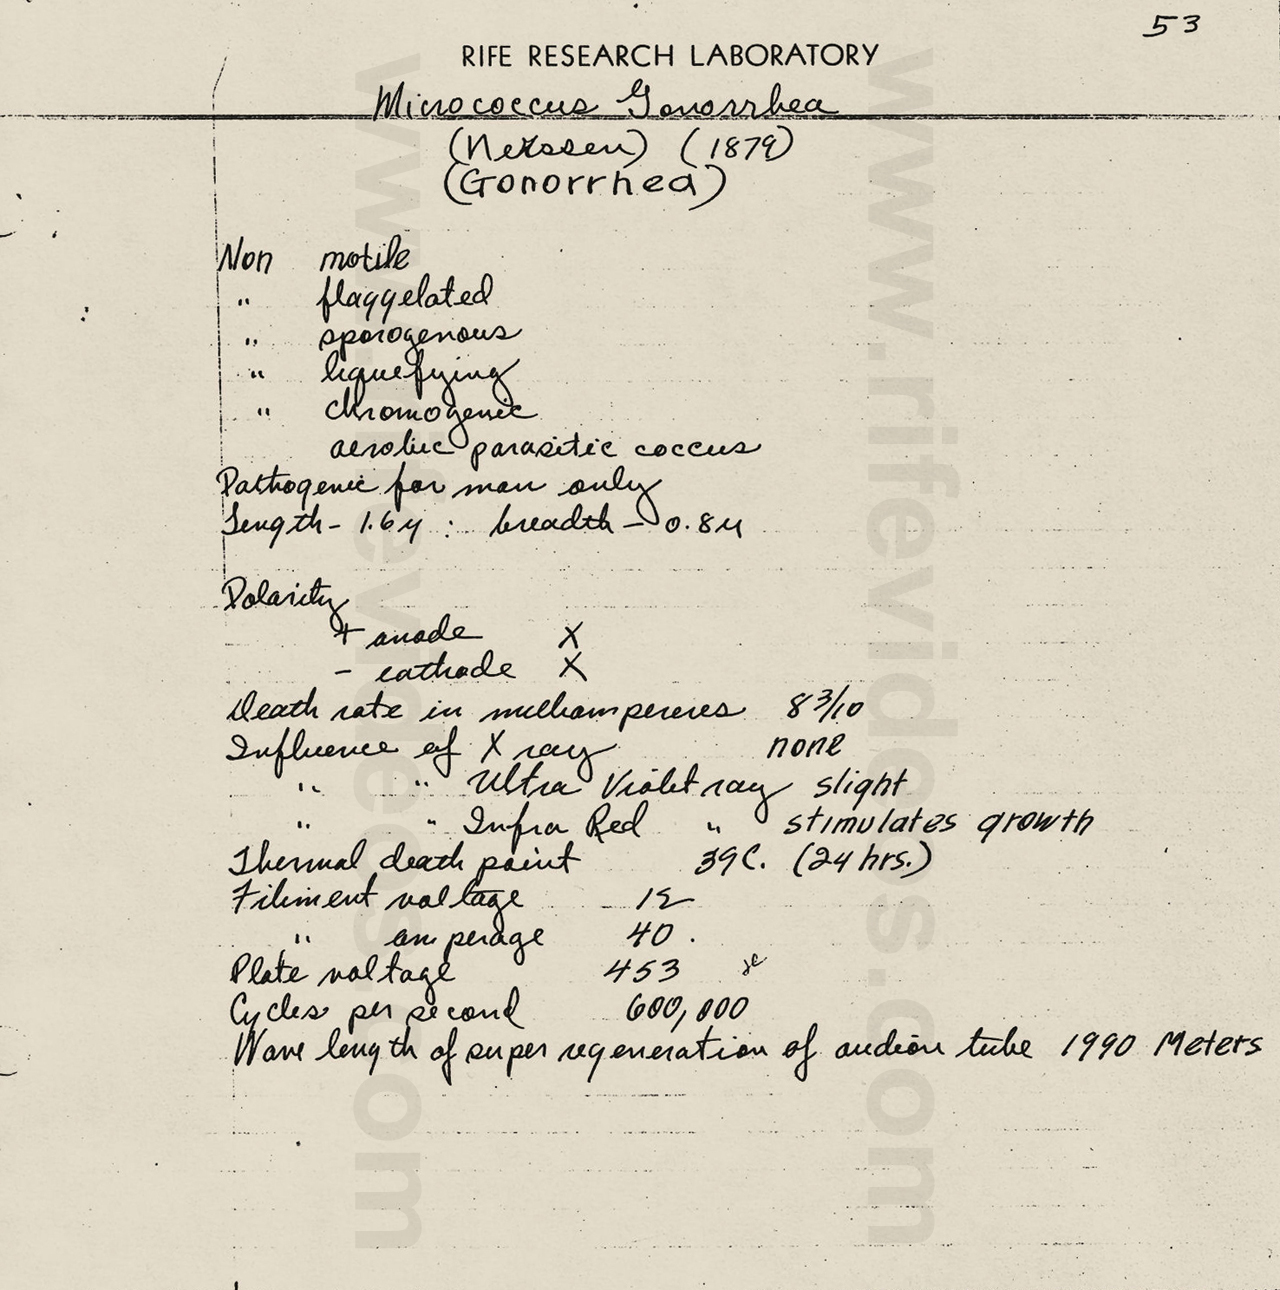 53
RIFE RESEARCH LABORATORY
Micrococcus Gonorrhea
(Neissen) (1879)
(Gonorrhea)
Non motile
" flaggelated
" sporogenous
" liquefying
" chromogenic
aerobic parasitic coccus
Pathogenic for man only
Length - 1.6 μ : breadth - 0.8 μ
Polarity
+ anode X
- cathode X
Death rate in milliamperes 8 3/10
Influence of X ray none
" " Ultra Violet ray slight
" " Infra Red " stimulates growth
Thermal death point 39C. (24 hrs.)
Filiment voltage 12
" amperage 40.
Plate voltage 453
Cycles per second 600,000
Wave length of super regeneration of audion tube 1990 Meters
www.rifevideos.com
www.rifevideos.com